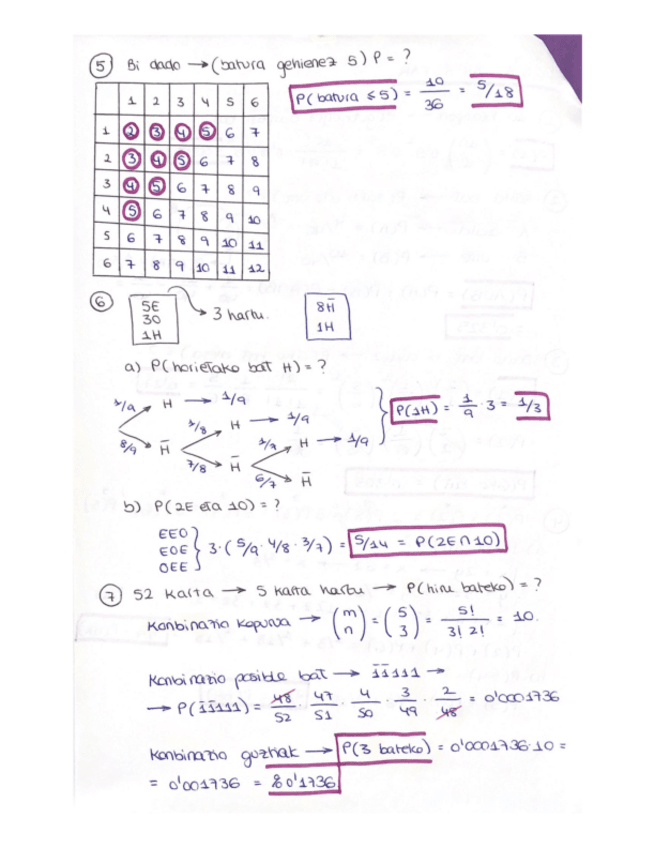 ⑤ Bi dado → (batura gehienez 5) P = ?
P(batura ≤ 5) = 10/36 = 5/18
1 2 3 4 5 6
1 2 3 4 5 6 7
2 3 4 5 6 7 8
3 4 5 6 7 8 9
4 5 6 7 8 9 10
5 6 7 8 9 10 11
6 7 8 9 10 11 12
⑥ 5E
3O → 3 hartu.
1H
8H̄
1H
a) P(horietako bat H) = ?
1/9 H → 1/9
8/9 H̄
1/8 H → 1/9
7/8 H̄
1/7 H → 1/9
6/7 H̄
P(1H) = 1/9 · 3 = 1/3
b) P(2E eta 1O) = ?
EEO
EOE } 3·(5/9 · 4/8 · 3/7) = 5/14 = P(2E∩1O)
OEE
⑦ 52 karta → 5 karta hartu → P(hiru bateko) = ?
Konbinazio kopurua → (m n) = (5 3) = 5!/3! 2! = 10.
Konbinazio posible bat → 1̄1̄111 →
→ P(1̄1̄111) = 48/52 · 47/51 · 4/50 · 3/49 · 2/48 = 0'0001736
Konbinazio guztiak → P(3 bateko) = 0'0001736·10 =
= 0'001736 = %0'1736